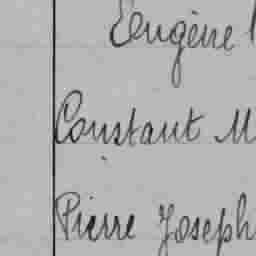 Eugène
Constant M
Pierre Joseph